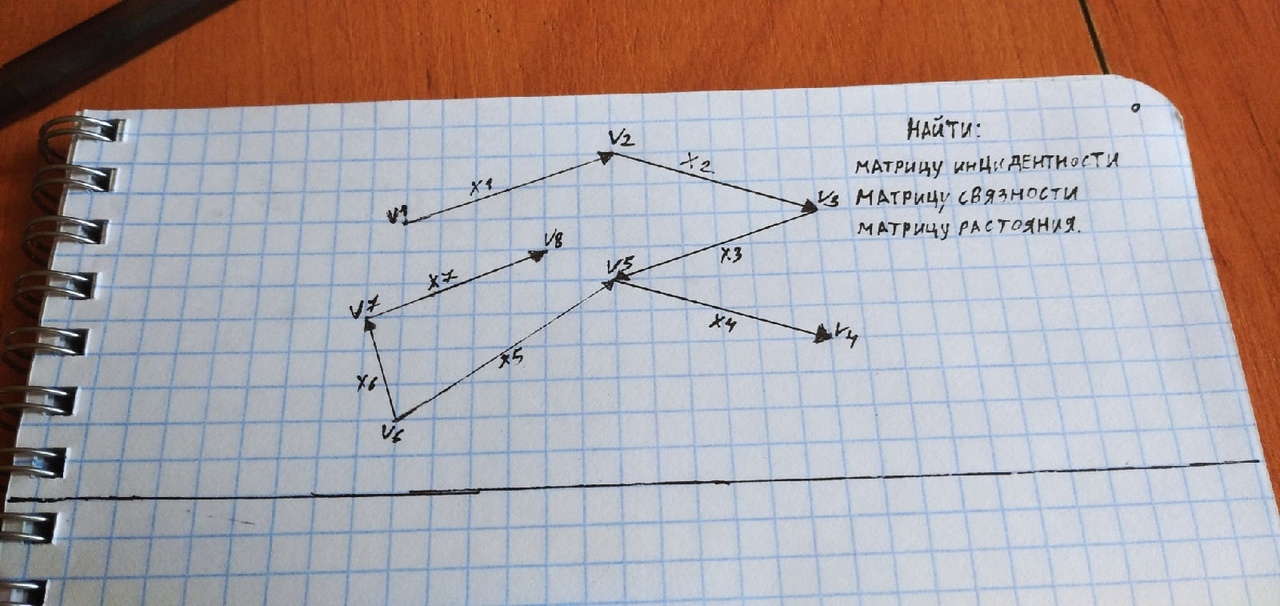 НАЙТИ:
МАТРИЦУ ИНЦИДЕНТНОСТИ
МАТРИЦУ СВЯЗНОСТИ
МАТРИЦУ РАСТОЯНИЯ.
V2
X1
X2
V1
V3
V8
X3
V5
X7
V7
X4
V4
X5
X6
V6